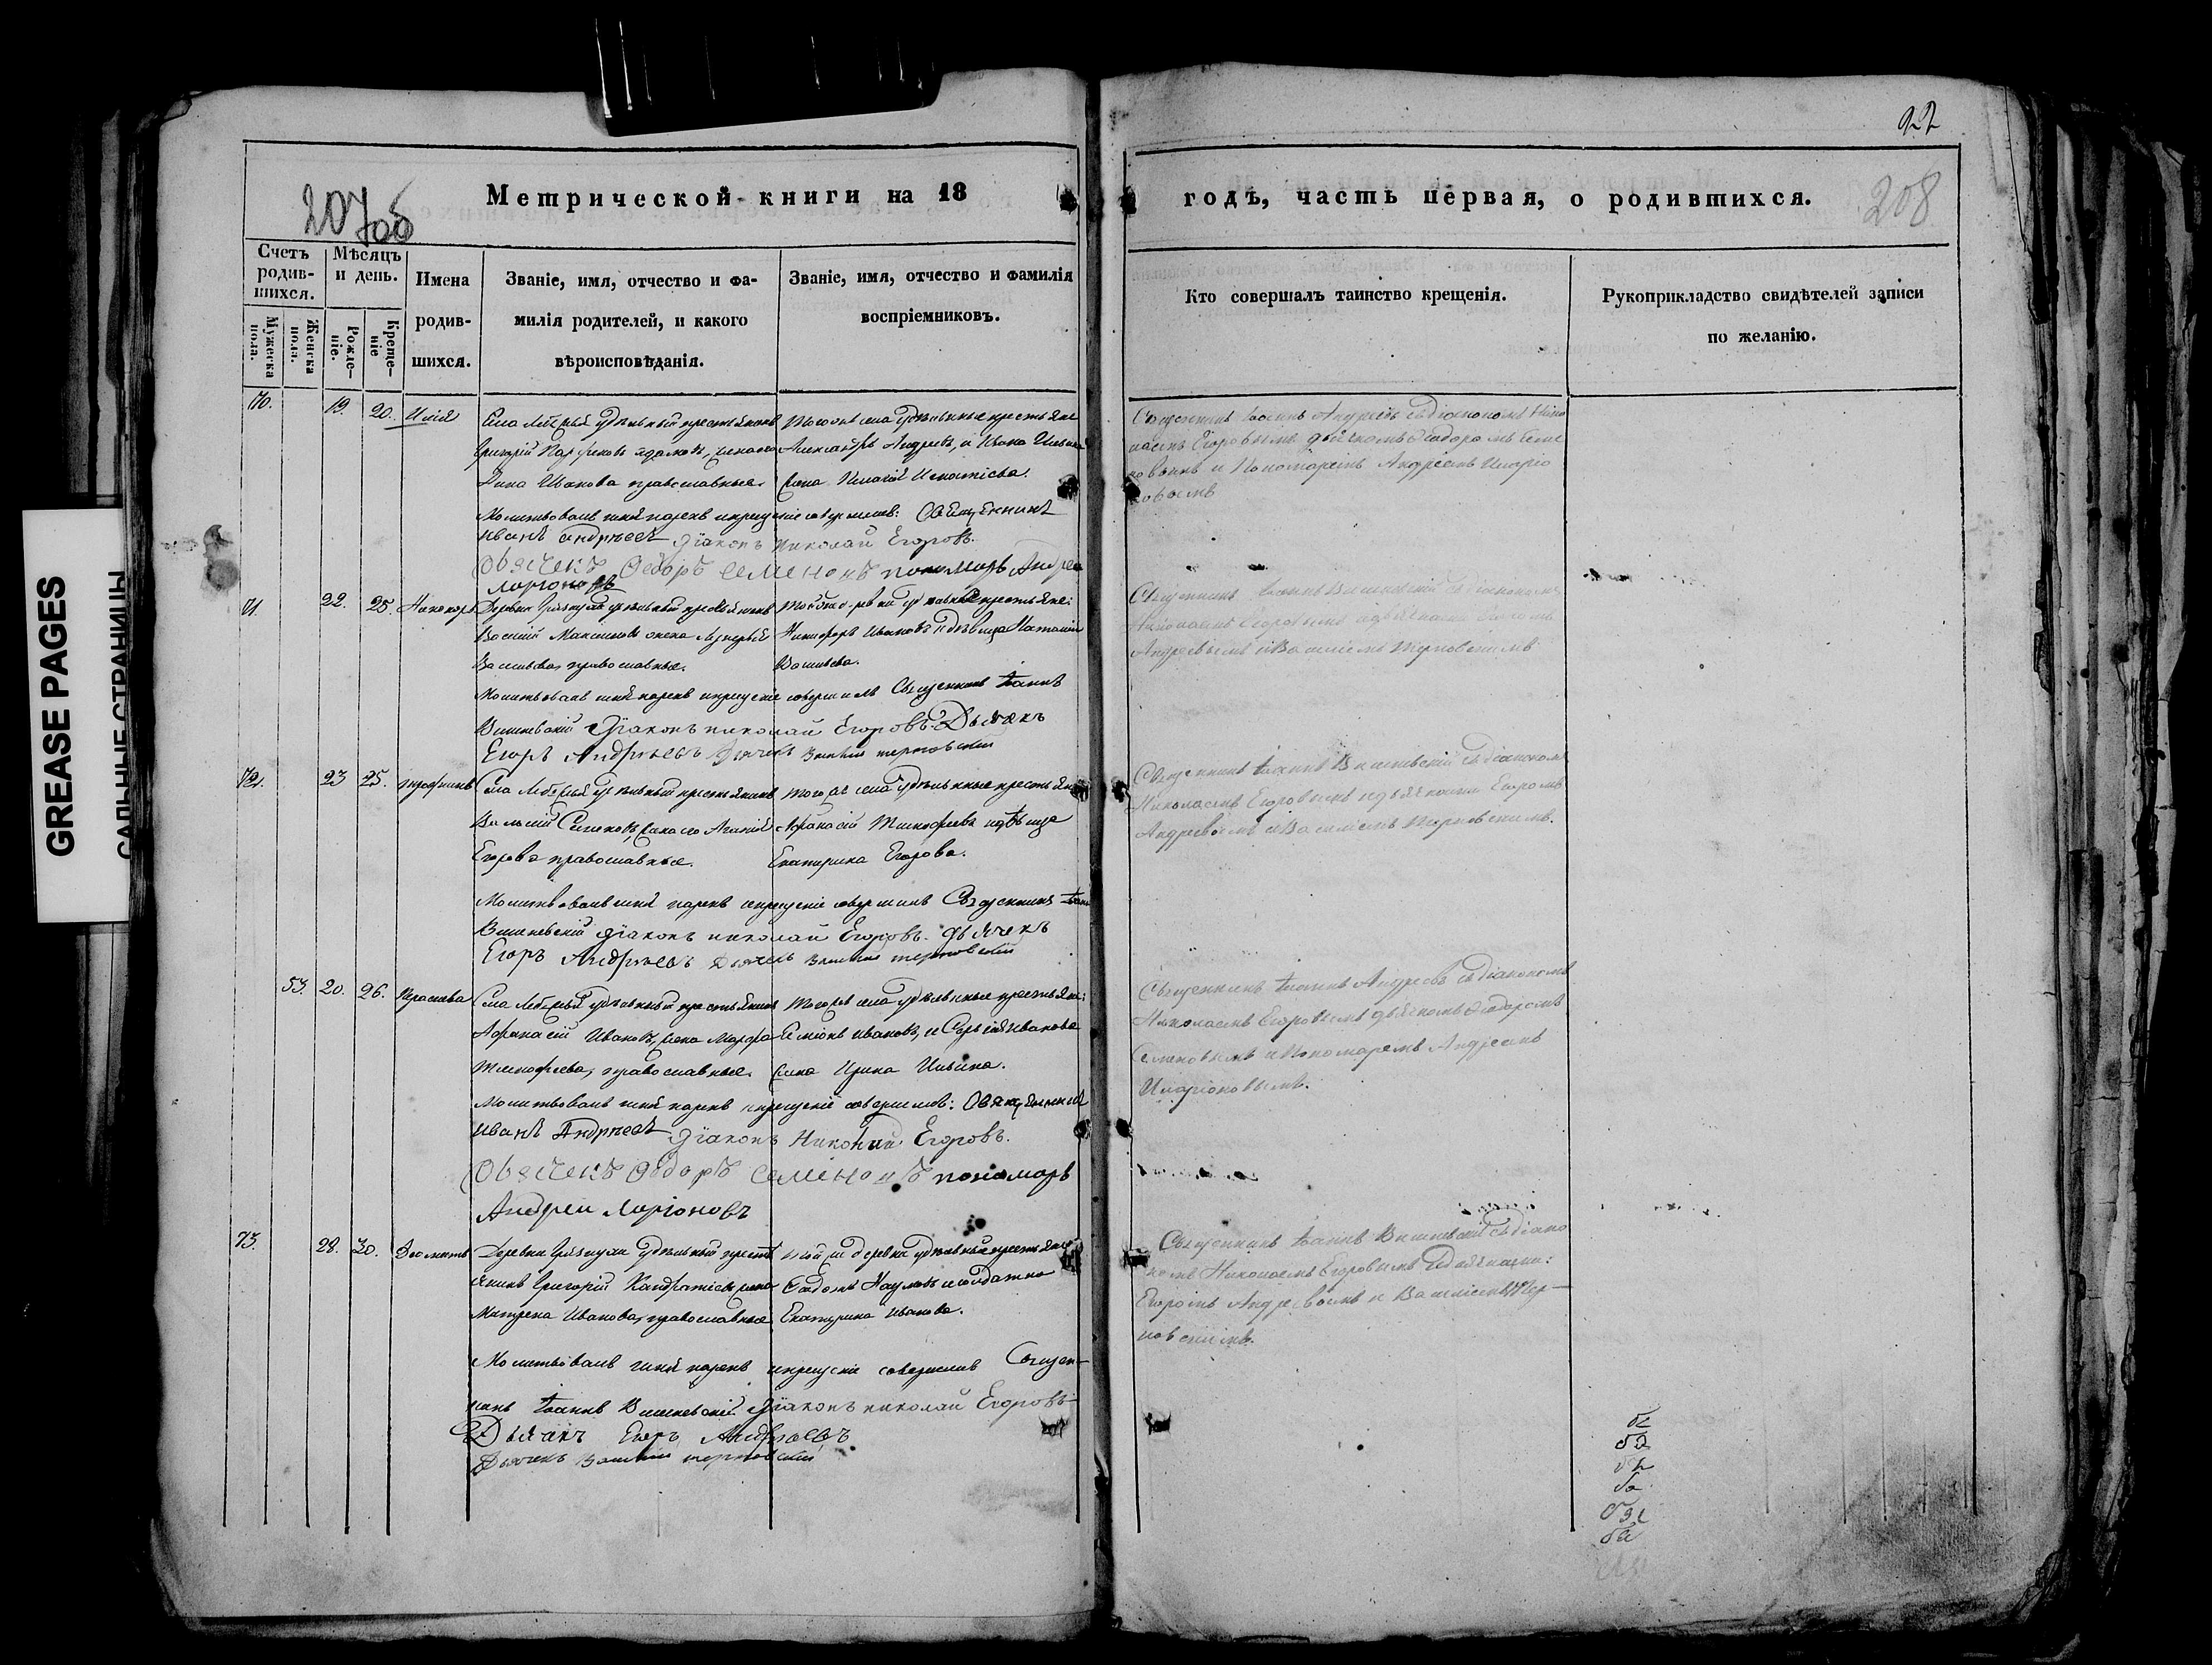 GREASE PAGES
САЛЬНЫЕ СТРАНИЦЫ
22
207об
208
Метрической книги на 18
годъ, часть первая, о родившихся.
Счетъ родив-шихся.
Мѣсяцъ и день.
Имена родив-шихся.
Званіе, имя, отчество и фа-
милія родителей, и какого
вѣроисповѣданія.
Званіе, имя, отчество и фамилія
воспріемниковъ.
Кто совершалъ таинство крещенія.
Рукоприкладство свидѣтелей записи
по желанію.
Мужеска пола.
Женска пола.
Рожде-ніе.
Креще-ніе
70. 19. 20. Илія
Села удѣльный крестьянинъ
Григорій
Анна Иванова православные.
Того же села удѣльные крестьяне
Александръ Андреевъ, и
Священникъ Іоаннъ Андреевъ съ діакономъ Нико
лаемъ Егоровымъ дьячкомъ Ѳеодоромъ Семе
новымъ и Пономаремъ Андреемъ Иларіо
новымъ
Молитвовалъ имя нарекъ и крещеніе совершилъ: Священникъ
Иванъ Андрѣевъ Діаконъ Николай Егоровъ.
Дьячекъ Ѳедоръ Семеновъ пономарь Андрей
Ларіоновъ
71. 22. 25. Никифоръ
Деревни удѣльный крестьянинъ
Василій Максимовъ жена
Васильева, православные.
Той же деревни удѣльные крестьяне:
Никифоръ Ивановъ и дѣвица Наталія
Васильева.
Священникъ Іоаннъ Вишневскій съ діакономъ
Николаемъ Егоровымъ и дьячками Егоромъ
Андреевымъ и Василіемъ Терновскимъ.
Молитвовалъ имя нарекъ и крещеніе совершилъ Священникъ Іоаннъ
Вишневскій Діаконъ Николай Егоровъ. Дьячекъ
Егоръ Андрѣевъ Дьячекъ Василій Терновскій
72. 23 25. Трофимъ
Села удѣльный крестьянинъ
Василій Семеновъ, жена его
Егорова православные.
Того же села удѣльные крестьяне
Афанасій Тимофеевъ и дѣвица
Екатерина Егорова.
Священникъ Іоаннъ Вишневскій съ діакономъ
Николаемъ Егоровымъ и дьячками Егоромъ
Андреевымъ и Василіемъ Терновскимъ.
Молитвовалъ имя нарекъ и крещеніе совершилъ Священникъ Іоаннъ
Вишневскій Діаконъ Николай Егоровъ. Дьячекъ
Егоръ Андрѣевъ Дьячекъ Василій Терновскій
53. 20. 26. Параскева
Села удѣльный крестьянинъ
Афанасій Ивановъ, жена Марфа
Тимофеева, православные.
Того же села удѣльные крестьяне:
Семіонъ Ивановъ, и Сергія Иванова
жена Ирина Ильина.
Священникъ Іоаннъ Андреевъ съ діакономъ
Николаемъ Егоровымъ дьячкомъ Ѳеодоромъ
Семеновымъ и Пономаремъ Андреемъ
Иларіоновымъ.
Молитвовалъ имя нарекъ и крещеніе совершилъ: Священникъ
Иванъ Андрѣевъ Діаконъ Николай Егоровъ.
Дьячекъ Ѳедоръ Семеновъ пономарь
Андрей Ларіоновъ
73. 28. 30.
Деревни удѣльный кресть
янинъ Григорій Кандратіевъ, жена
Матрена Иванова, православные
Той же деревни удѣльный крестьянинъ
Наумовъ и солдатка
Екатерина Иванова.
Священникъ Іоаннъ Вишневскій съ діако
номъ Николаемъ Егоровымъ и дьячками:
Егоромъ Андреевымъ и Василіемъ Тер-
новскимъ.
Молитвовалъ имя нарекъ и крещеніе совершилъ Священ-
никъ Іоаннъ Вишневскій. Діаконъ Николай Егоровъ
Дьячекъ Егоръ Андрѣевъ
Дьячекъ Василій Терновскій